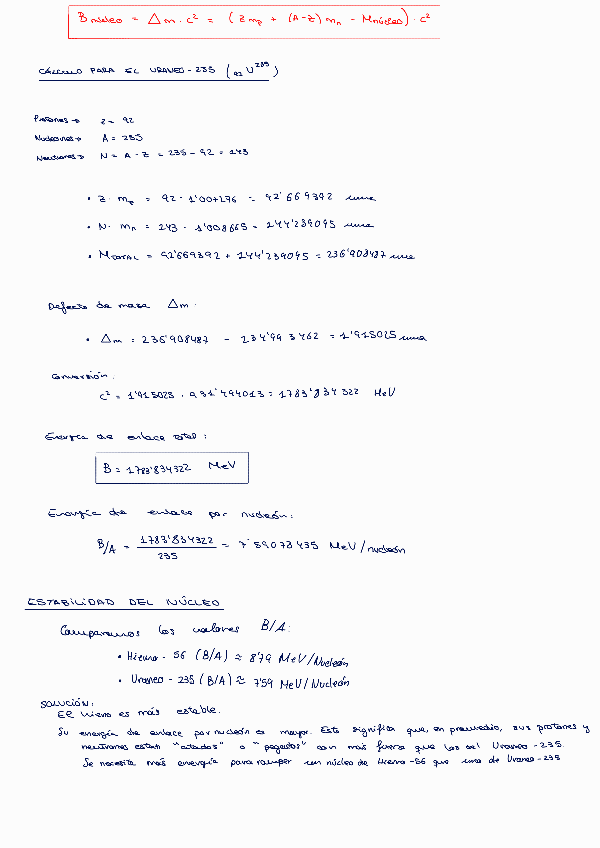 B núcleo = Δm · c² = (Z mp + (A-Z) mn - M núcleo) · c²
CÁLCULO PARA EL URANEO-235 (92 U 235)
Protones → Z = 92
Nucleones → A = 235
Neutrones → N = A - Z = 235 - 92 = 143
• Z · mp = 92 · 1'007276 = 92'669392 uma
• N · mn = 143 · 1'008665 = 144'239095 uma
• M TOTAL = 92'669392 + 144'239095 = 236'908487 uma
Defecto de masa Δm.
• Δm = 236'908487 - 234'993462 = 1'915025 uma
Conversión:
c² = 1'915025 · 931'494013 = 1783'834322 MeV
Energía de enlace total:
B = 1783'834322 MeV
Energía de enlace por nucleón:
B/A = 1783'834322 / 235 = 7'59073435 MeV/nucleón
ESTABILIDAD DEL NÚCLEO
Comparamos los valores B/A:
• Hierro-56 (B/A) ≈ 8'79 MeV/Nucleón
• Uraneo-235 (B/A) ≈ 7'59 MeV/Nucleón
SOLUCIÓN:
El hierro es más estable.
Su energía de enlace por nucleón es mayor. Esto significa que, en promedio, sus protones y
neutrones están "atados" o "pegados" con más fuerza que los del Uraneo-235.
Se necesita más energía para romper un núcleo de Hierro-56 que uno de Uraneo-235